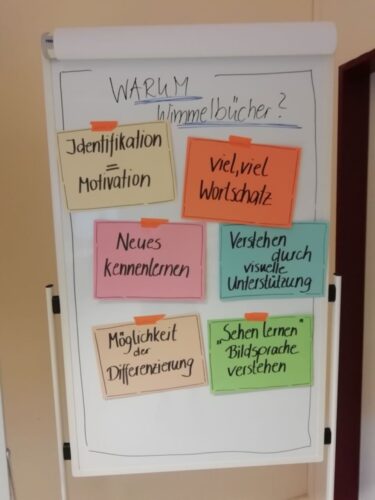 WARUM
Wimmelbücher?
Identifikation
=
Motivation
viel, viel
Wortschatz
Neues
kennenlernen
Verstehen
durch
visuelle
Unterstützung
Möglichkeit
der
Differenzierung
"Sehen lernen"
Bildsprache
verstehen